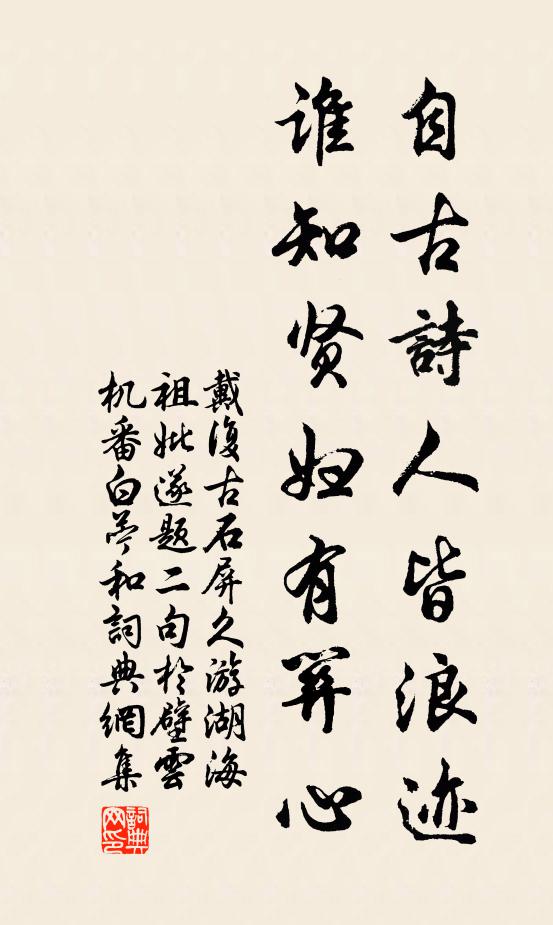 自古詩人皆浪迹
誰知贤妇有关心
戴復古石屏久游湖海
祖妣遂题二句於壁雲
机番白苎和詞典網集
詞典網印